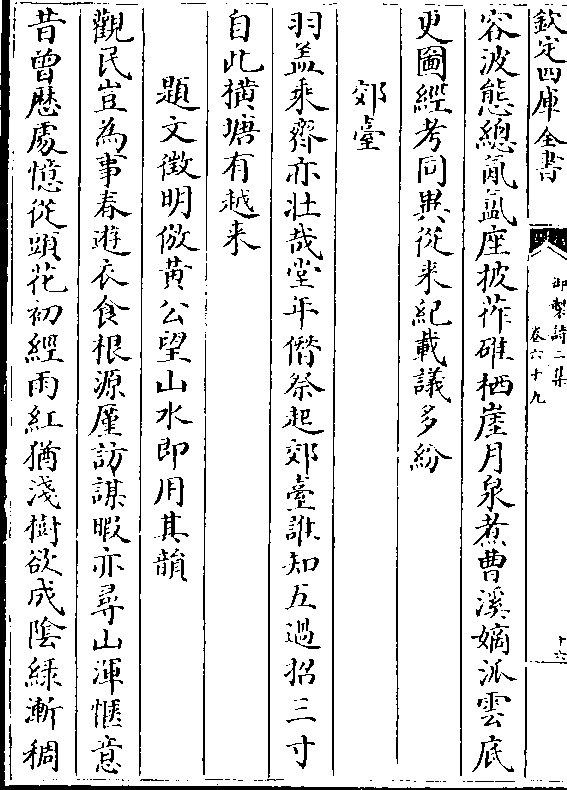 欽定四庫全書
御製詩二集
卷六十九
十六
容波態總氤氳座披䓉碓栖崖月泉煮曹溪嫡派雲底
更圖經考同異從来紀載議多紛
郊臺
羽盖乘齊亦壮哉堂年僭祭起郊臺誰知五過招三寸
自此横塘有越来
題文徵明倣黄公望山水即用其韻
觀民豈為事春逰衣食根源厪訪謀暇亦尋山渾愜意
昔曾歴處憶從頭花初經雨紅猶淺樹欲成隂緑漸稠